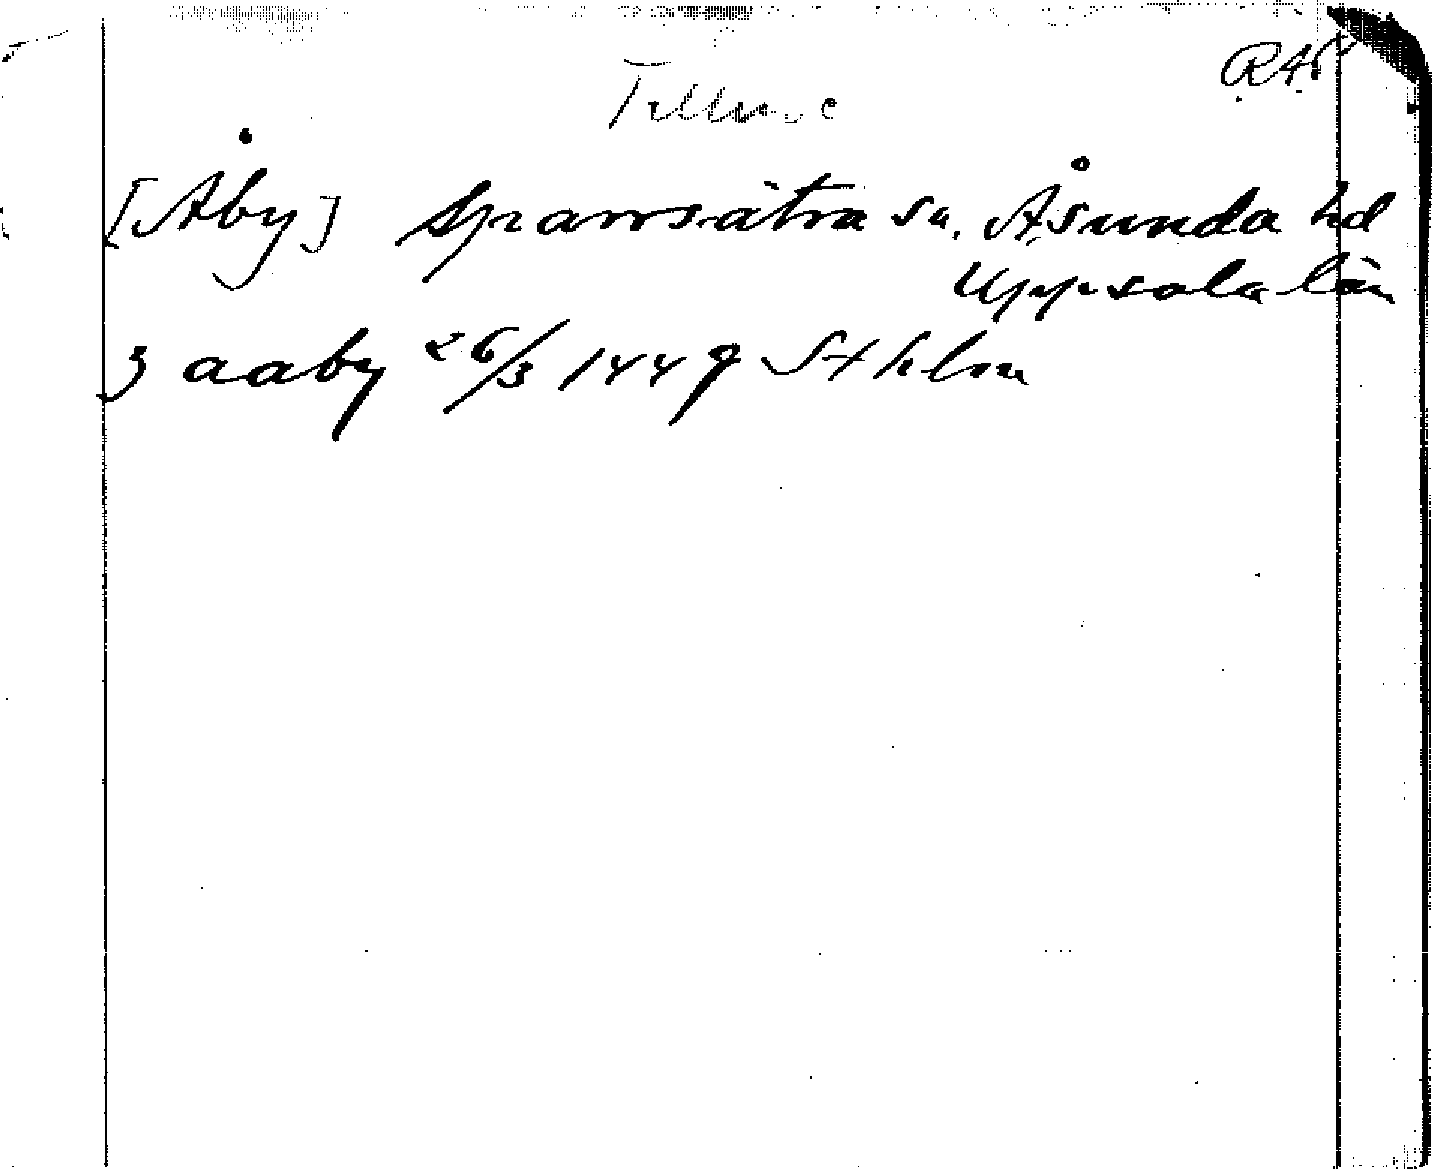 [Åby] Sparrsätra sn, Åsunda hd
Uppsala län
j aaby 26/3 1449 Sthlm